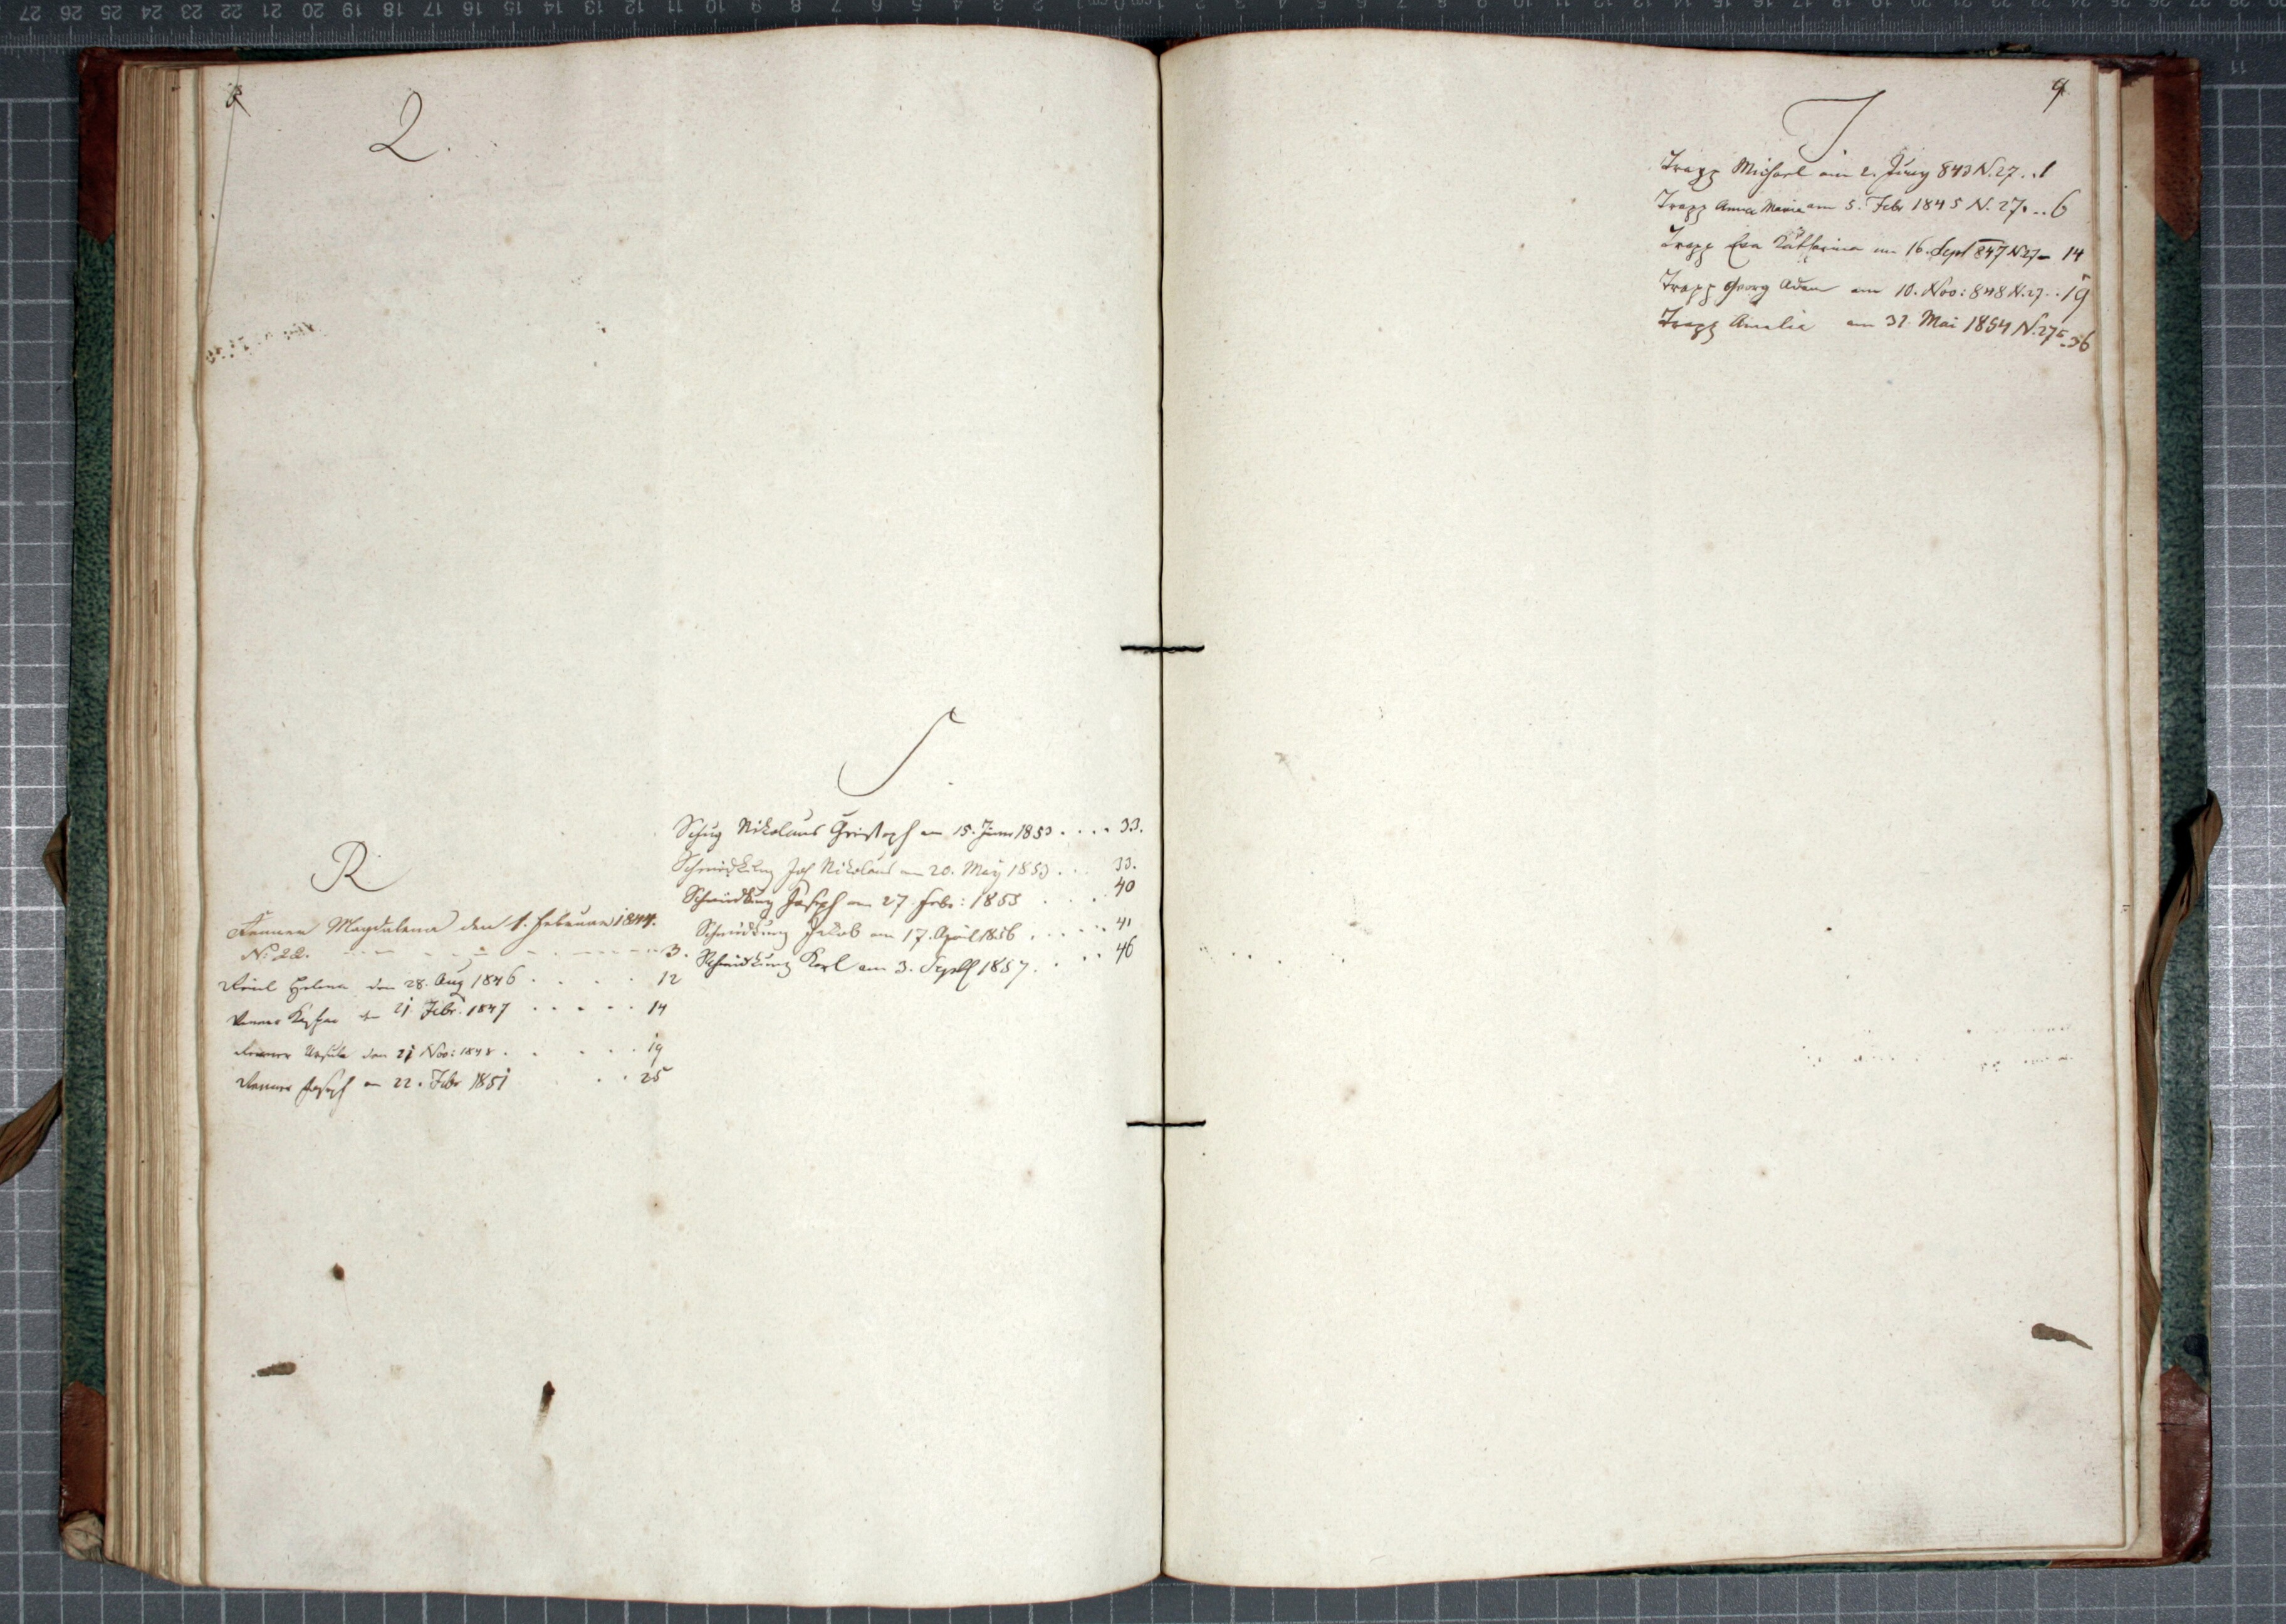 8
Q.
R
Renner Magdalena den 1. Februar 1844.
N: 22. 3.
Helena den 28. Aug 1846 . . . . 12
Renner den 21 Febr. 1847 . . . . . 14
Renner Ursula den 21 Nov: 1848 . . . . . 19
Renner Joseph am 22. Febr 1851 . . 25
S
Schug Nikolaus Christoph am 15. 1853 . . . . 33.
Joh Nikolaus am 20. May 1853 . . . 33.
Joseph am 27 Febr: 1855 . . . . 40
Jakob am 17. April 1856 . . . . . 41
Karl am 3. Septb 1857. . . . 46
9
T.
Trapp Michael am 2. Juny 843 N. 27. . 1
Trapp Anna Maria am 5. Febr 1845 N. 27. . . 6
Trapp Eva Katharina am 16. Sept 847 N 27 – 14
Trapp Georg Adam am 10. Nov: 848 N. 27 . . 19
Trapp Amalia am 31. Mai 1854 N. 27 . 36